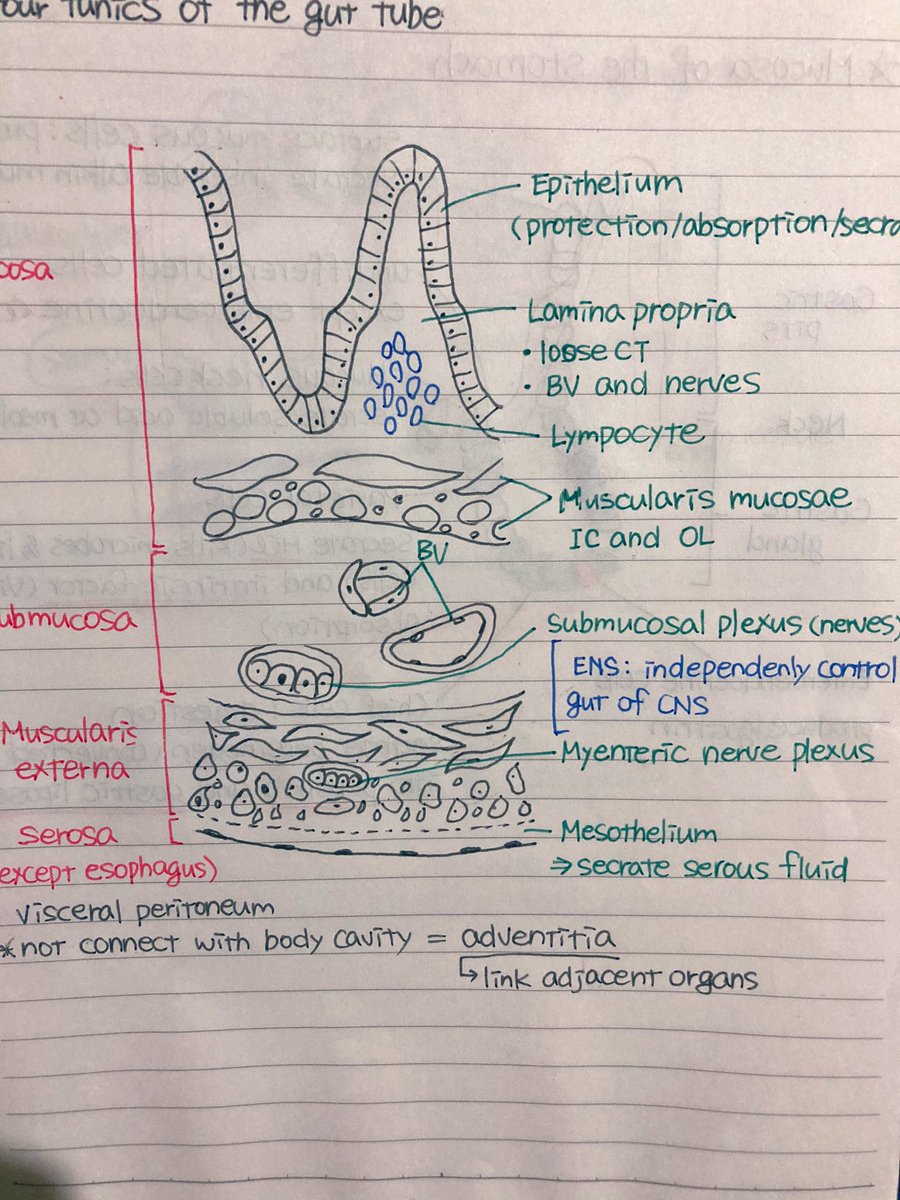 our tunics of the gut tube
Epithelium
(protection/absorption/secre
cosa
Lamina propria
• loose CT
• BV and nerves
Lympocyte
Muscularis mucosae
IC and OL
BV
ubmucosa
submucosal plexus (nerves)
ENS: independenly control
gut of CNS
Muscularis
externa
Myenteric nerve plexus
serosa
(except esophagus)
Mesothelium
⇒ secrate serous fluid
visceral peritoneum
*not connect with body cavity = adventitia
↳ link adjacent organs